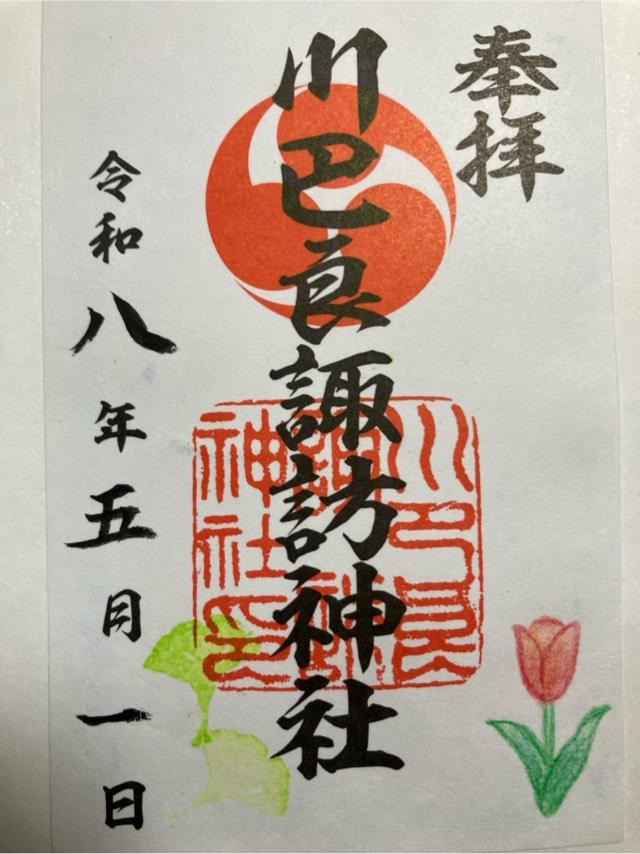 奉拝
川巴良諏訪神社
川巴良
諏訪
神社印
令和八年五月一日